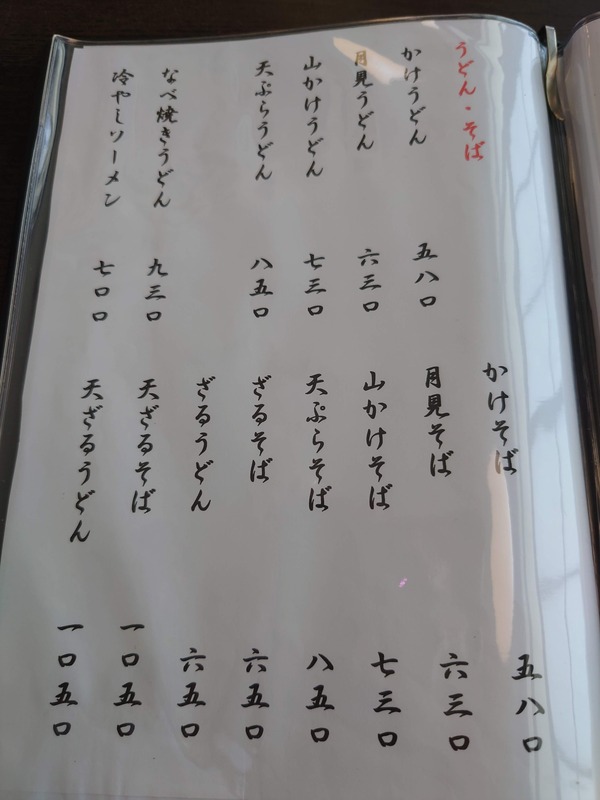 うどん・そば
かけうどん
五八〇
月見うどん
六三〇
山かけうどん
七三〇
天ぷらうどん
八五〇
なべ焼きうどん
九三〇
冷やしソーメン
七〇〇
かけそば
五八〇
月見そば
六三〇
山かけそば
七三〇
天ぷらそば
八五〇
ざるそば
六五〇
ざるうどん
六五〇
天ざるそば
一〇五〇
天ざるうどん
一〇五〇